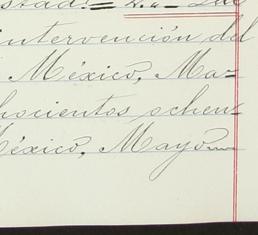 stad.= 4.a= Las
intervención del
México, Ma=
hocientos ochen=
México, Mayo